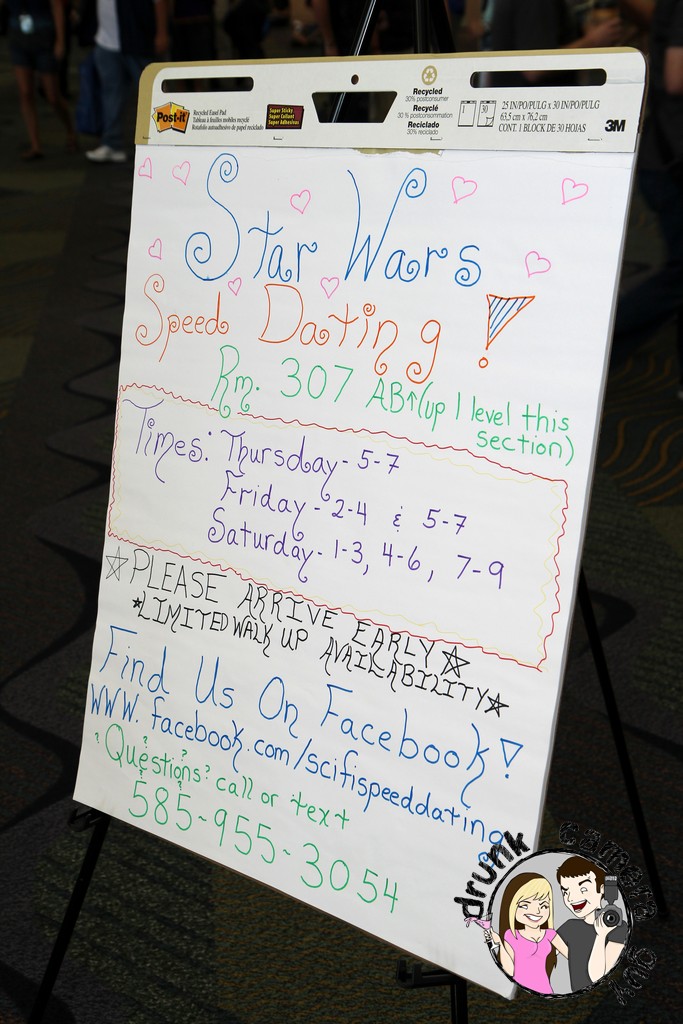 Post-it
Recycled Easel Pad
Tableau à feuilles mobiles recyclé
Rotafolio autoadhesivo de papel reciclado
Super Sticky
Super Collant
Super Adhesivas
Recycled
30% postconsumer
Recyclé
30 % postconsommation
Reciclado
30% reciclado
1 30
25 IN/PO/PULG x 30 IN/PO/PULG
63,5 cm x 76,2 cm
CONT. 1 BLOCK DE 30 HOJAS
3M
Star Wars
Speed Dating!
Rm. 307 AB↑(up 1 level this
section)
Times: Thursday - 5-7
Friday - 2-4 & 5-7
Saturday - 1-3, 4-6, 7-9
☆PLEASE ARRIVE EARLY☆
☆LIMITED WALK UP AVAILABILITY☆
Find Us On Facebook!
WWW.facebook.com/scifispeeddating
?Questions? call or text
585-955-3054
drunk camera guy